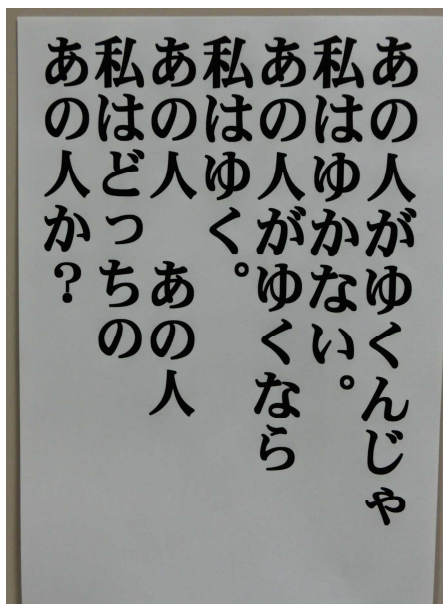 あの人がゆくんじゃ
私はゆかない。
あの人がゆくなら
私はゆく。
あの人　あの人
私はどっちの
あの人か？